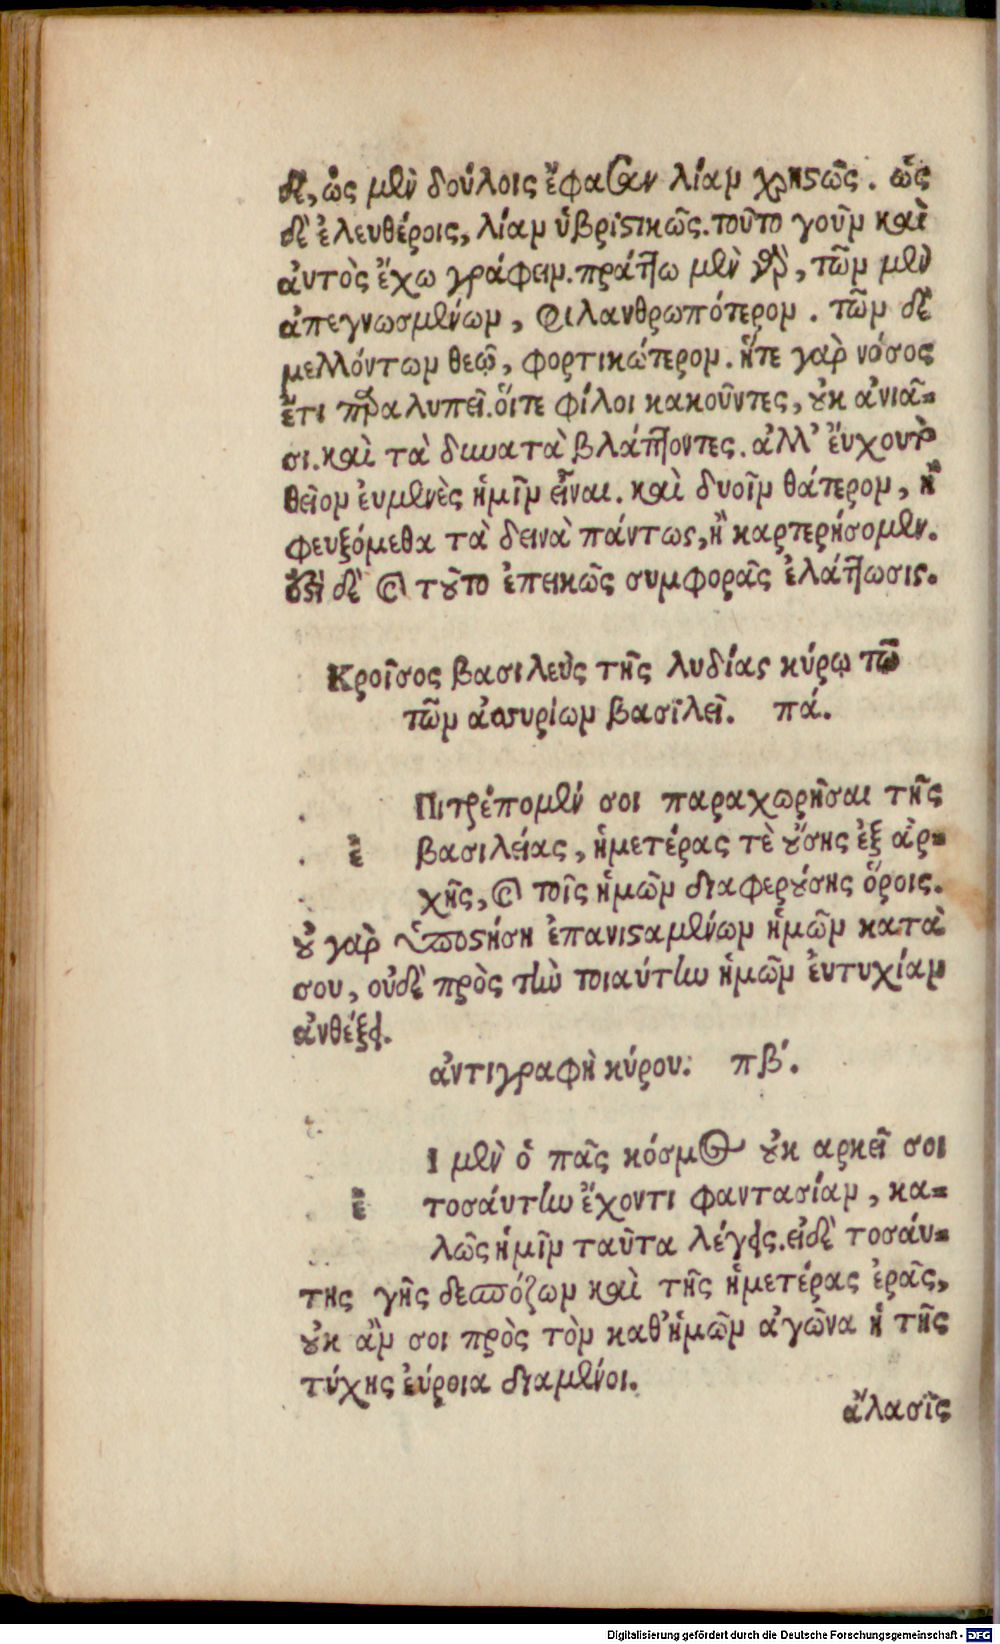 δὲ, ὡς μὲν δούλοις ἔφασαν λίαν χρηστῶς. ὡς
δὲ ἐλευθέροις, λίαν ὑβριστικῶς. τοῦτο γοῦν καὶ
αὐτὸς ἔχω γράφειν. πράττω μὲν γὰρ, τῶν μὲν
ἀπεγνωσμένων, φιλανθρωπότερον. τῶν δὲ
μελλόντων θεῷ, φορτικώτερον. ἥτε γὰρ νόσος
ἔτι παραλυπεῖ. ὅιτε φίλοι κακοῦντες, οὐκ ἀνιᾶ-
σι. καὶ τὰ δυνατὰ βλάπτοντες. ἀλλ' ἔυχου τὸ
θεῖον ἐυμενὲς ἡμῖν εἶναι. καὶ δυοῖν θάτερον, ἢ
φευξόμεθα τὰ δεινὰ πάντως, ἢ καρτερήσομεν.
ἐστὶ δὲ καὶ τοῦτο ἐπεικῶς συμφορᾶς ἐλάττωσις.
Κροῖσος βασιλεὺς τῆς λυδίας κύρῳ τῷ
τῶν ἀσσυρίων βασϊλεῖ. πά.
Πιτρέπομέν σοι παραχωρῆσαι τῆς
ἐ βασιλείας, ἡμετέρας τὲ οὔσης ἐξ ἀρ-
χῆς, καὶ τοῖς ἡμῶν διαφερούσης ὅροις.
οὐ γὰρ ὑποστήσῃ ἐπανισταμένων ἡμῶν κατὰ
σου, οὐδὲ πρὸς τὴν τοιαύτην ἡμῶν ἐυτυχίαν
ἀνθέξει.
ἀντιγραφὴ κύρου. πβ΄.
Ι μὲν ὁ πᾶς κόσμος οὐκ αρκεῖ σοι
ἐ τοσάυτην ἔχοντι φαντασίαν, κα-
λῶς ἡμῖν ταῦτα λέγεις. εἰδὲ τοσάυ-
της γῆς δεσπόζων καὶ τῆς ἡμετέρας ἐρᾶς,
οὐκ ἂν σοι πρὸς τὸν καθ'ἡμῶν ἀγῶνα ἡ τῆς
τύχης ἐύροια διαμένοι.
ἄλασῖς